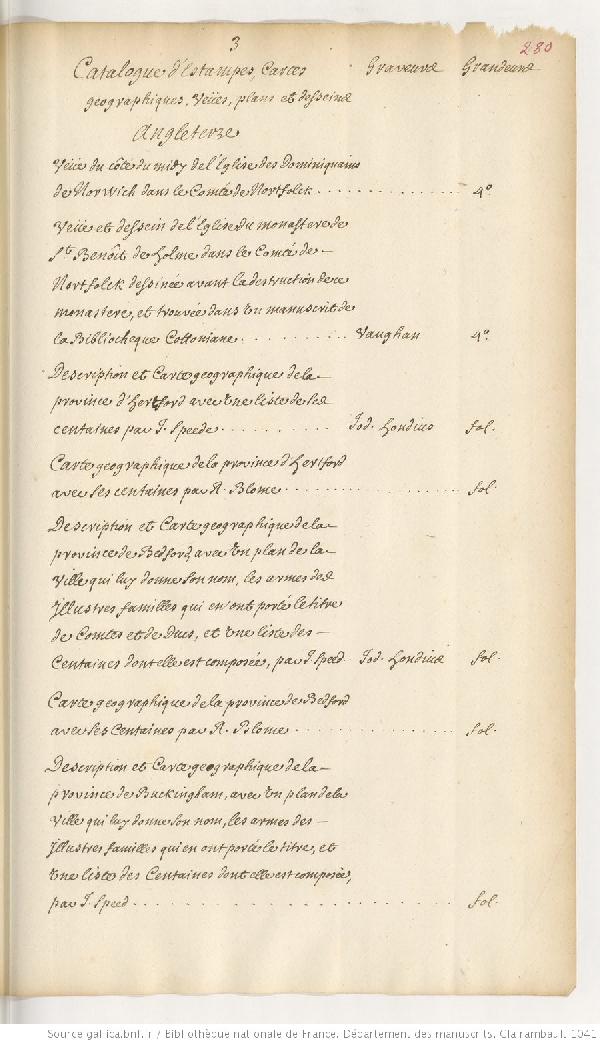 3
280
Catalogue d'Estampes, Cartes Graveurs Grandeurs
geographiques, Veües, plans et desseins
Angleterre
Veüe du côté du midy de l'Eglise des Dominiquains
de Norwich dans le Comté de Nortfolck . . . . . . . . . . . . 4°.
Veüe et dessein de l'Eglise du monastere de
St. Benoît de Holme dans le Comté de –
Nortfolck dessinée avant la destruction de ce
monastere, et trouvée dans un manuscrit de
la Bibliotheque Cottoniane . . . . . . . . . Vaughan 4°.
Description et Carte geographique de la –
province d'Hertford avec une liste de ses
centaines par J. Speede . . . . . . . . . . Jod. Hondius fol.
Carte geographique de la province d'Hertford
avec ses centaines par R. Blome . . . . . . . . . . . . . . . fol.
Description et Carte geographique de la –
province de Bedford, avec un plan de la –
Ville qui luy donne son nom, les armes des
Jllustres familles qui en ont porté le titre
de Comtes et de Ducs, et une liste des –
Centaines dont elle est composée, par J. Speed Jod. Hondius fol.
Carte geographique de la province de Bedford
avec ses Centaines par R. Blome . . . . . . . . . . . . . . . fol.
Description et Carte geographique de la –
province de Buckingham, avec un plan de la
Ville qui luy donne son nom, les armes des –
Jllustres familles qui en ont porté le titre, et
une liste des Centaines dont elle est composée,
par J. Speed . . . . . . . . . . . . . . . . . . . . . . . . . fol.
Source gallica.bnf.fr / Bibliothèque nationale de France. Département des manuscrits. Clairambault 1041